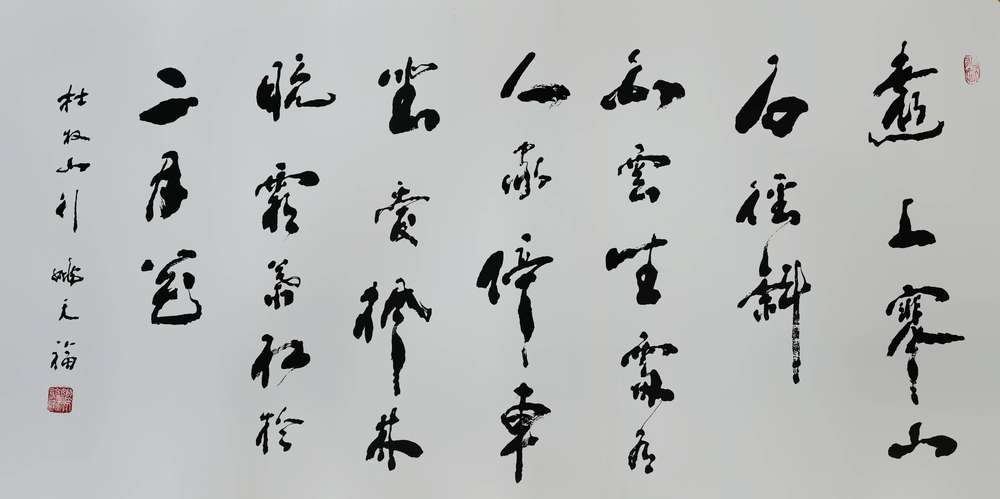 遠上寒山
石徑斜
白雲生處有
人家停車
坐愛楓林
晚霜葉紅於
二月花
杜牧山行 元福